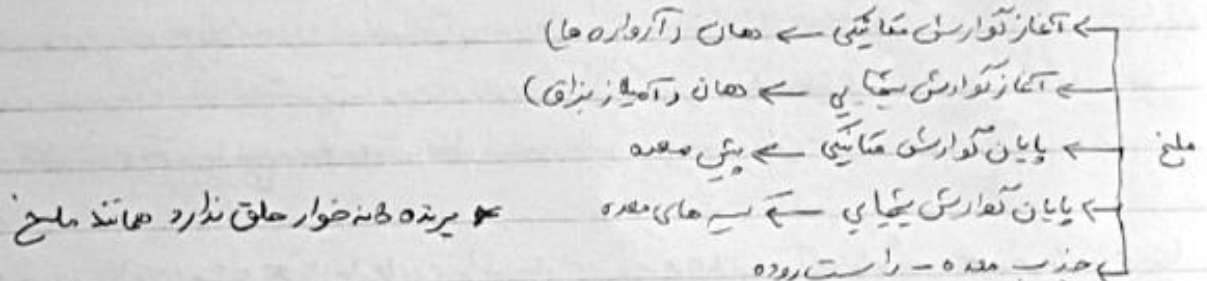 ملخ
← آغاز گوارش مکانیکی ← دهان (آرواره ها)
← آغاز گوارش شیمیایی ← دهان (آمیلاز بزاق)
← پایان گوارش مکانیکی ← پیش معده
← پایان گوارش شیمیایی ← کیسه های معده
* پرنده دانه خوار حلق ندارد همانند ملخ
← جذب معده - راست روده